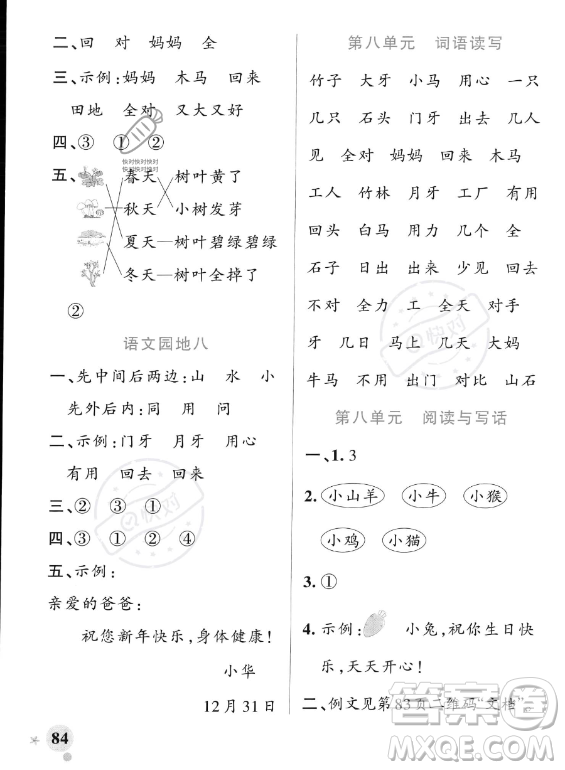 二、回 对 妈妈 全
三、示例:妈妈 木马 回来
田地 全对 又大又好
四、③ ① ②
五、
快对快对快对快对
快对快对快对快对
春天 树叶黄了
秋天 小树发芽
夏天 树叶碧绿碧绿
冬天 树叶全掉了
②
语文园地八
一、先中间后两边:山 水 小
先外后内:同 用 问
二、示例:门牙 月牙 用心
有用 回去 回来
三、② ③ ①
四、③ ① ② ④
五、示例:
亲爱的爸爸:
祝您新年快乐,身体健康!
小华
12月31日
84
第八单元 词语读写
竹子 大牙 小马 用心 一只
几只 石头 门牙 出去 几人
见 全对 妈妈 回来 木马
工人 竹林 月牙 工厂 有用
回头 力气 木工 用力 全
石子 日出 出来 少见 回去
不对 全力 工 全天 对手
牙 几日 马上 几天 大妈
牛马 不用 出门 对比 山石
第八单元 阅读与写话
一、1.3
2.小山羊 小牛 小猴
小鸡 小猫
3.①
4.示例: 小兔,祝你生日快
乐,天天开心!
二、例文见第83页二维码“文档”。
快对
快对
答案圈
MXQE.COM